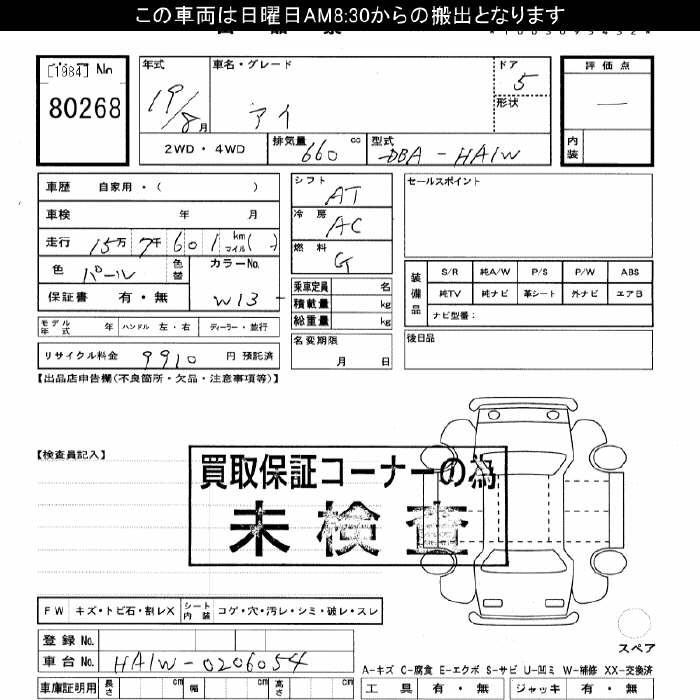 この車両は日曜日AM8:30からの搬出となります
[1984] No
80268
年式 車名・グレード ドア 5
19/8月 アイ 形状
2WD・4WD 排気量 660 cc 型式 DBA-HA1W
評価点
―
内装
車歴 自家用・( )
車検 年 月
走行 15万 7千 6 0 1 km マイル( )
色 パール 色替 カラーNo. W13
保証書 有・無
モデル年式 年 ハンドル 左・右 ディーラー・並行
リサイクル料金 9910 円 預託済
シフト AT
冷房 AC
燃料 G
乗車定員 名
積載量 kg
総重量 kg
名変期限
月 日
セールスポイント
装備品 S/R 純A/W P/S P/W ABS
純TV 純ナビ 革シート 外ナビ エアB
ナビ型番:
後日品
【出品店申告欄(不良箇所・欠品・注意事項等)】
【検査員記入】
買取保証コーナーの為
未検査
FW キズ・トビ石・割レX シート内装 コゲ・穴・汚レ・シミ・破レ・スレ
登録 No.
車台 No. HA1W-0206054
車庫証明用 長さ cm 幅 cm 高さ cm
スペア
A-キズ C-腐食 E-エクボ S-サビ U-凹ミ W-補修 XX-交換済
工具 有・無 ジャッキ 有・無